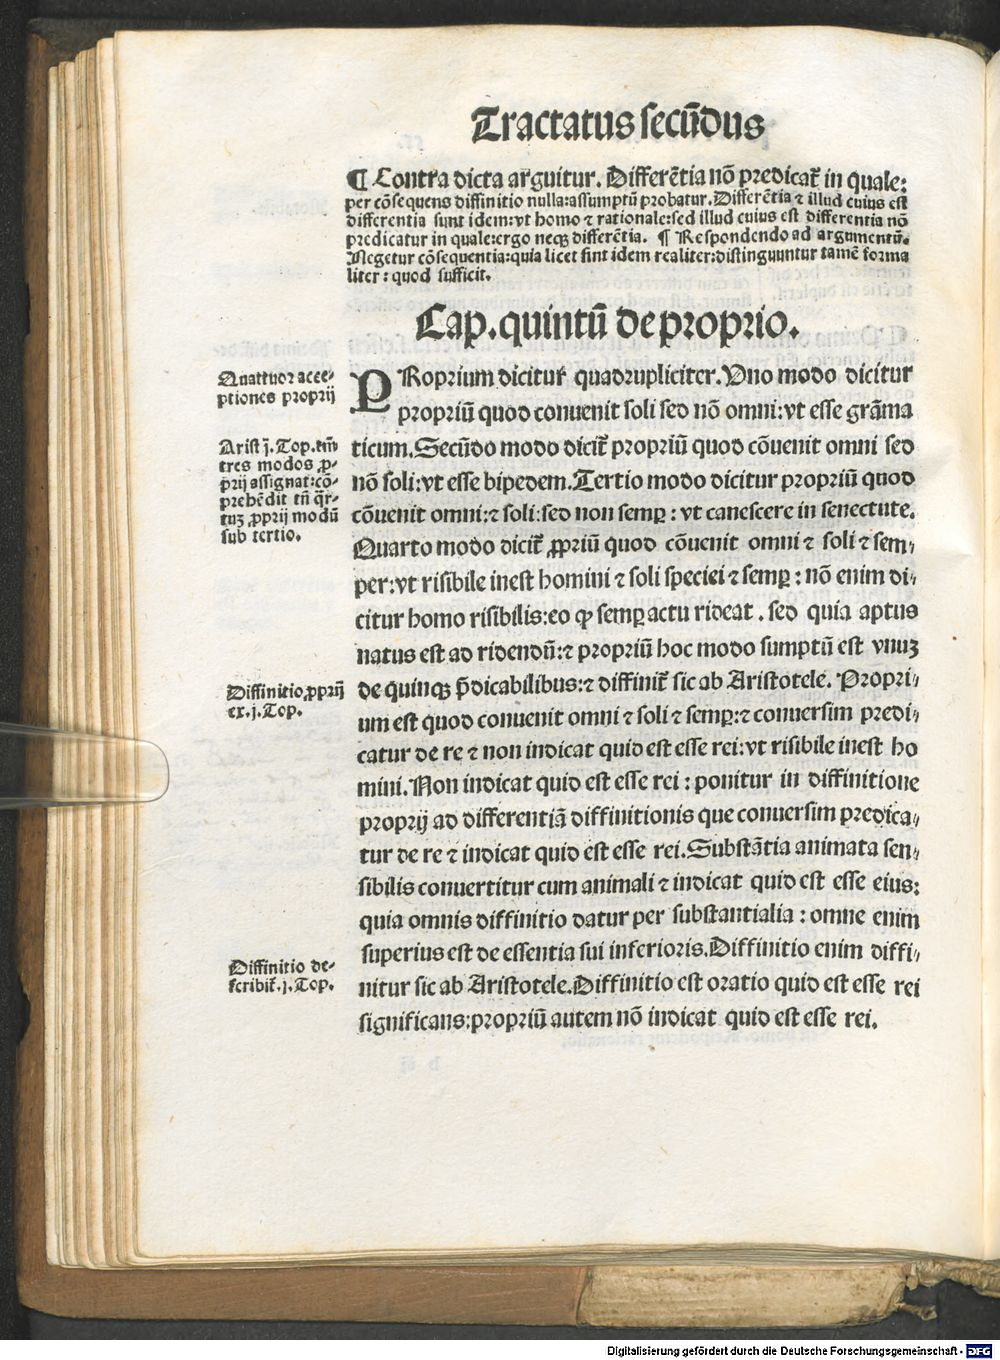 Tractatus secūdus
¶ Contra dicta arguitur. Differētia nō predicat̄ in quale:
per cōsequens diffinitio nulla: assumptū probatur. Differētia ⁊ illud cuius est
differentia sunt idem: vt homo ⁊ rationale: sed illud cuius est differentia nō
predicatur in quale: ergo neqꝫ differētia. ¶ Respondendo ad argumentū.
Negetur cōsequentia: quia licet sint idem realiter: distinguuntur tamē forma
liter: quod sufficit.
Cap. quintū de proprio.
Quattuor acce-
ptiones proprij
PRoprium dicitur quadrupliciter. Uno modo dicitur
propriū quod conuenit soli sed nō omni: vt esse grāma
Arist j. Top. tm̄
tres modos ꝓ-
prij assignat: cō-
prehēdit tn̄ q̄r-
tuꝫ ꝓprij modū
sub tertio.
ticum. Secūdo modo dicit̄ propriū quod cōuenit omni sed
nō soli: vt esse bipedem. Tertio modo dicitur propriū quod
cōuenit omni: ⁊ soli: sed non semꝑ: vt canescere in senectute.
Quarto modo dicit̄ ꝓpriū quod cōuenit omni ⁊ soli ⁊ sem⸗
per: vt risibile inest homini ⁊ soli speciei ⁊ semꝑ: nō enim di⸗
citur homo risibilis: eo ꝙ semꝑ actu rideat. sed quia aptus
natus est ad ridendū: ⁊ propriū hoc modo sumptū est vnuꝫ
Diffinitio ꝓprij
ex. j. Top.
de quinqꝫ p̄dicabilibus: ⁊ diffinit̄ sic ab Aristotele. Propri⸗
um est quod conuenit omni ⁊ soli ⁊ semꝑ: ⁊ conuersim predi⸗
catur de re ⁊ non indicat quid est esse rei: vt risibile inest ho
mini. Non indicat quid est esse rei: ponitur in diffinitione
proprij ad differentiā diffinitionis que conuersim predica⸗
tur de re ⁊ indicat quid est esse rei. Substātia animata sen⸗
sibilis conuertitur cum animali ⁊ indicat quid est esse eius:
quia omnis diffinitio datur per substantialia: omne enim
superius est de essentia sui inferioris. Diffinitio enim diffi⸗
Diffinitio de-
scribit̄. j. Top.
nitur sic ab Aristotele. Diffinitio est oratio quid est esse rei
significans: propriū autem nō indicat quid est esse rei.
Digitalisierung gefördert durch die Deutsche Forschungsgemeinschaft - DFG